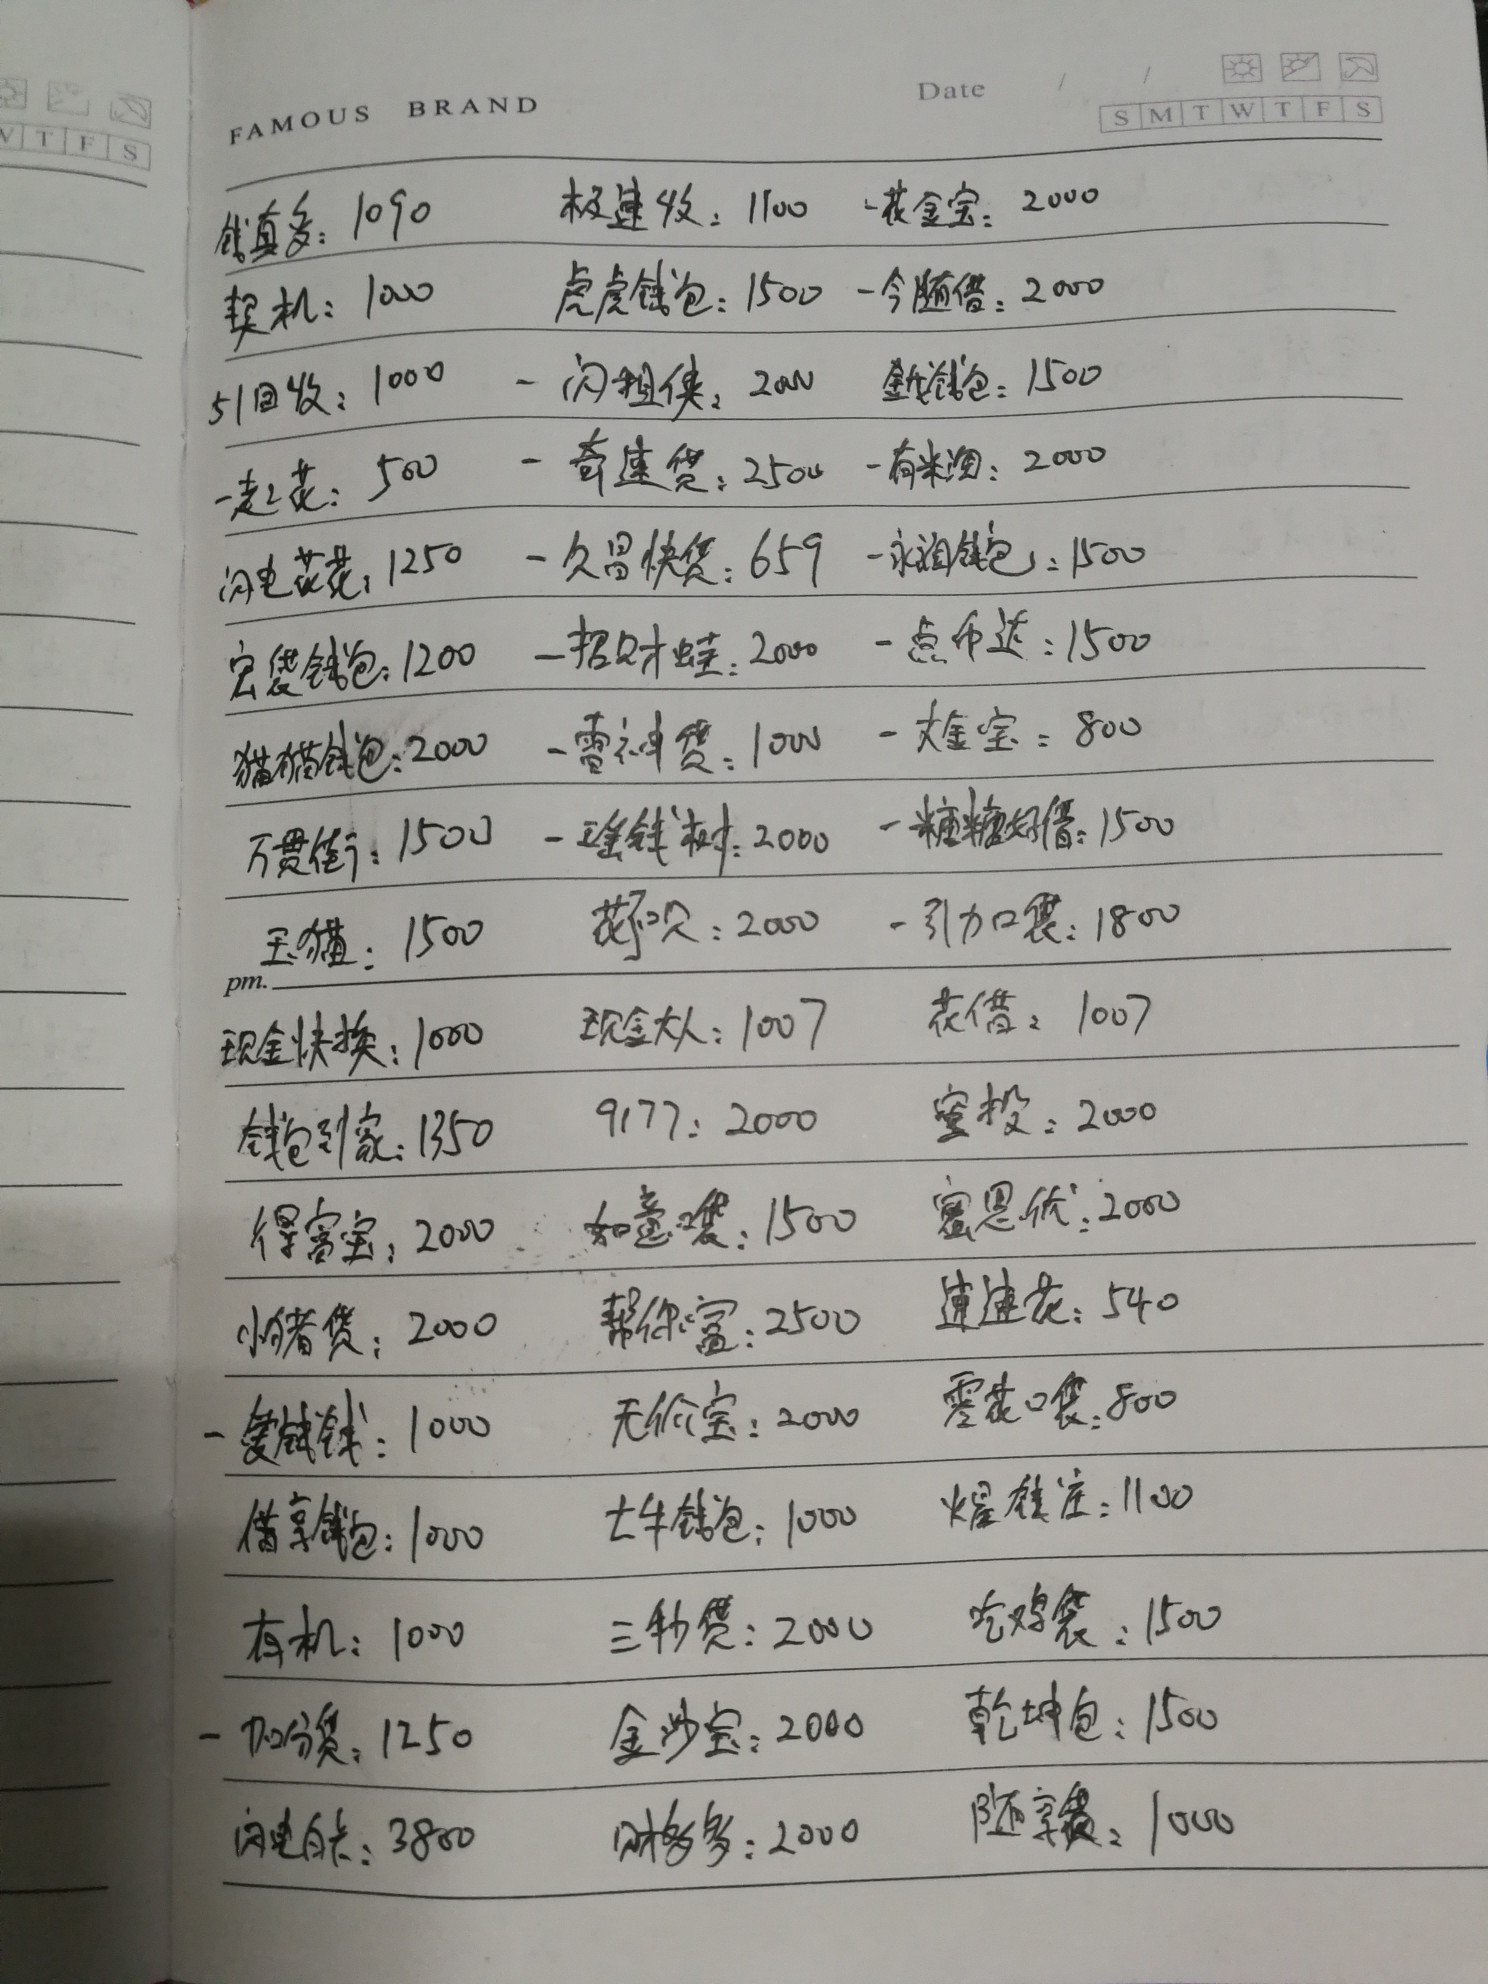 FAMOUS BRAND Date / / S M T W T F S
W T F S
钱真多：1090 极速收：1100 -花金宝：2000
契机：1000 虎虎钱包：1500 -今随借：2000
51回收：1000 - 闪租侠：2000 钱包：1500
一起花：500 - 奇速贷：2500 -有米淘：2000
闪电花花：1250 - 久昌快贷：659 -钱包：1500
宏袋钱包：1200 -招财蛙：2000 - 点币达：1500
猫猫钱包：2000 -雷神贷：1000 - 大金宝：800
万贯街：1500 -摇钱树：2000 -糖糖好借：1500
玉猫：1500 花不只：2000 -引力口袋：1800
pm.
现金快换：1000 现金大人：1007 花借：1007
钱包到家：1350 9177：2000 蜜投：2000
得富宝：2000 如意口袋：1500 蜜恩优：2000
小猪贷：2000 帮你富：2500 速速花：540
- 爱钱钱：1000 无价宝：2000 零花口袋：800
借享钱包：1000 七牛钱包：1000 耀钱庄：1100
有机：1000 三秒贷：2000 吃鸡袋：1500
- 加分贷：1250 金沙宝：2000 乾坤包：1500
闪电白卡：3800 财多多：2000 随享贷：1000